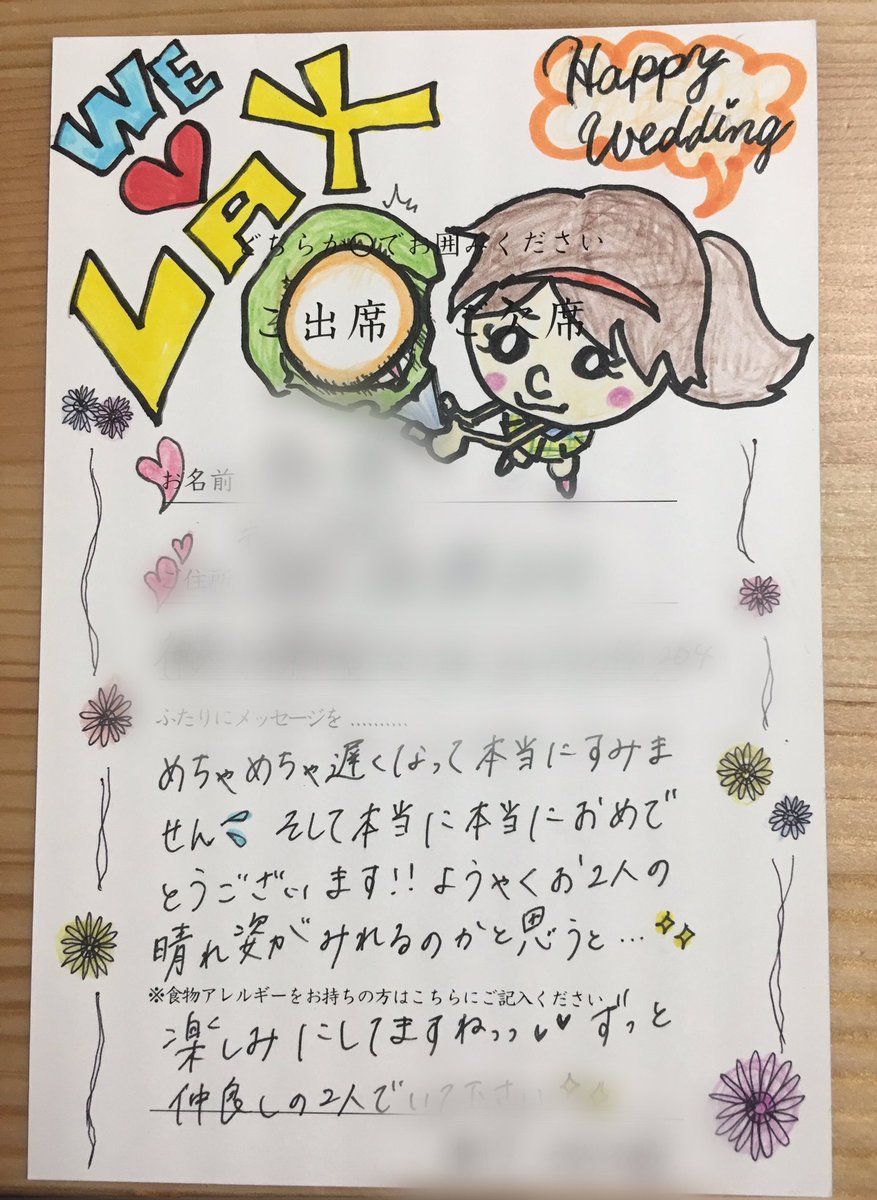 WE
LAX
Happy
Wedding
どちらか○でお囲みください
ご出席 ご欠席
お名前
ご住所
264
ふたりにメッセージを ..........
めちゃめちゃ遅くなって本当にすみま
せん そして本当に本当におめで
とうございます!! ようやくお2人の
晴れ姿がみれるのかと思うと…
※食物アレルギーをお持ちの方はこちらにご記入ください
楽しみにしてますねっっ ずっと
仲良しの2人でいて下さい